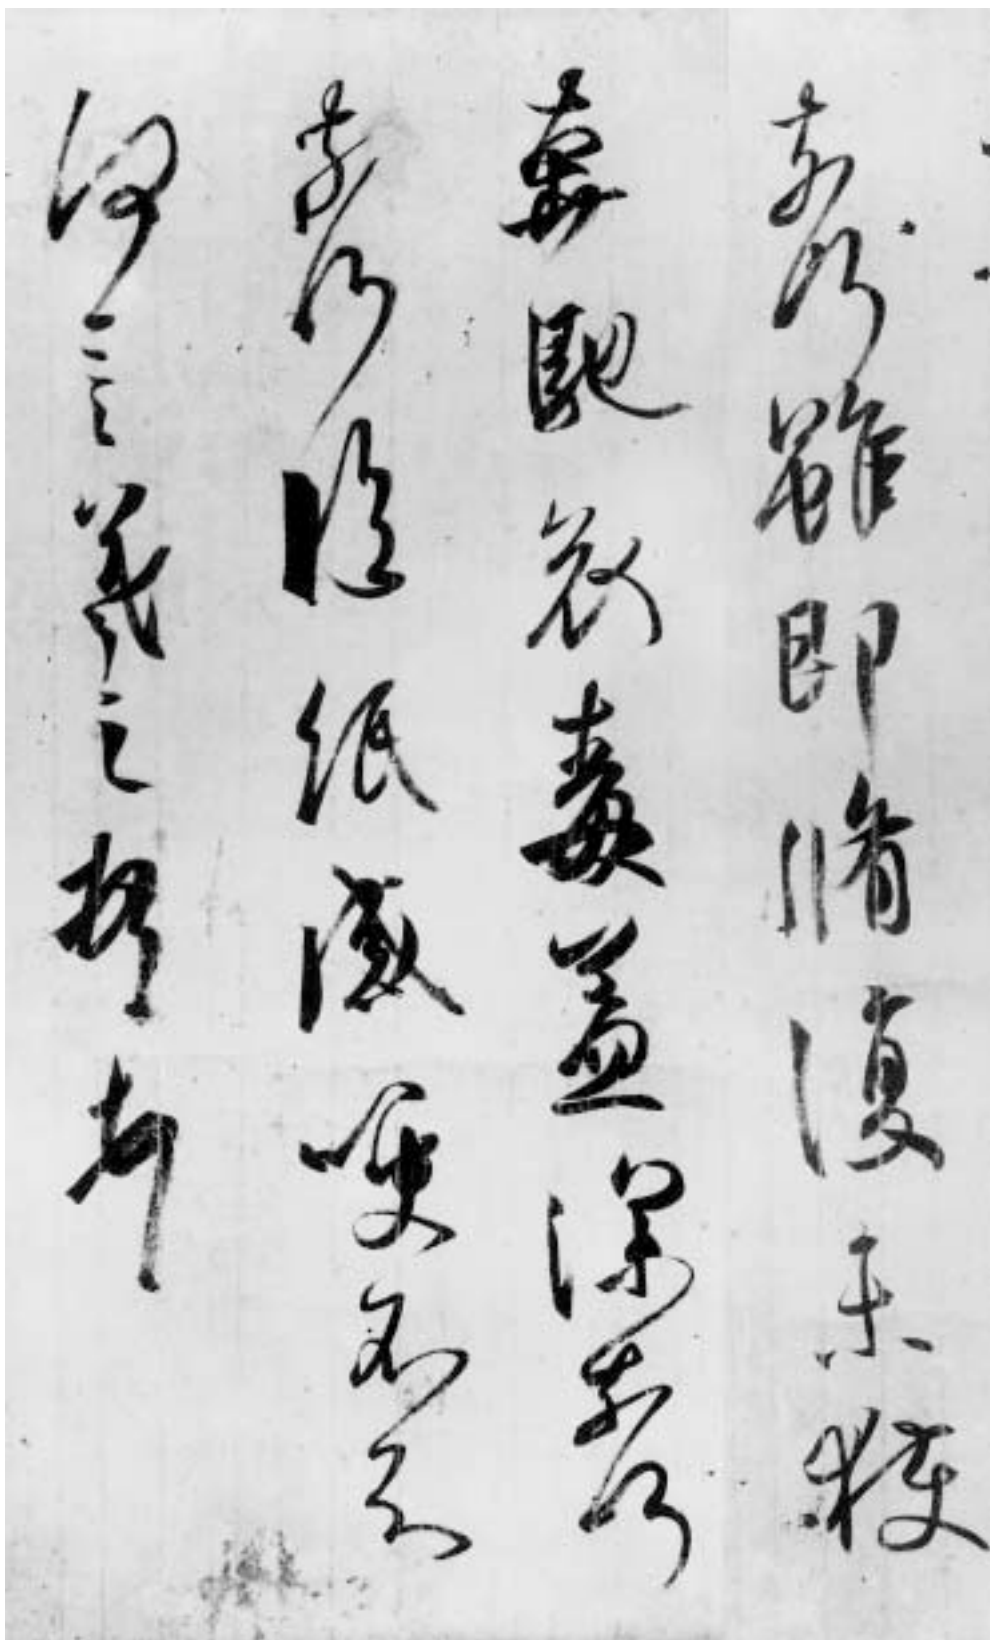 奈何雖即脩復未獲
奔馳哀毒益深奈何
奈何臨紙感哽不知
何言羲之頓首頓首